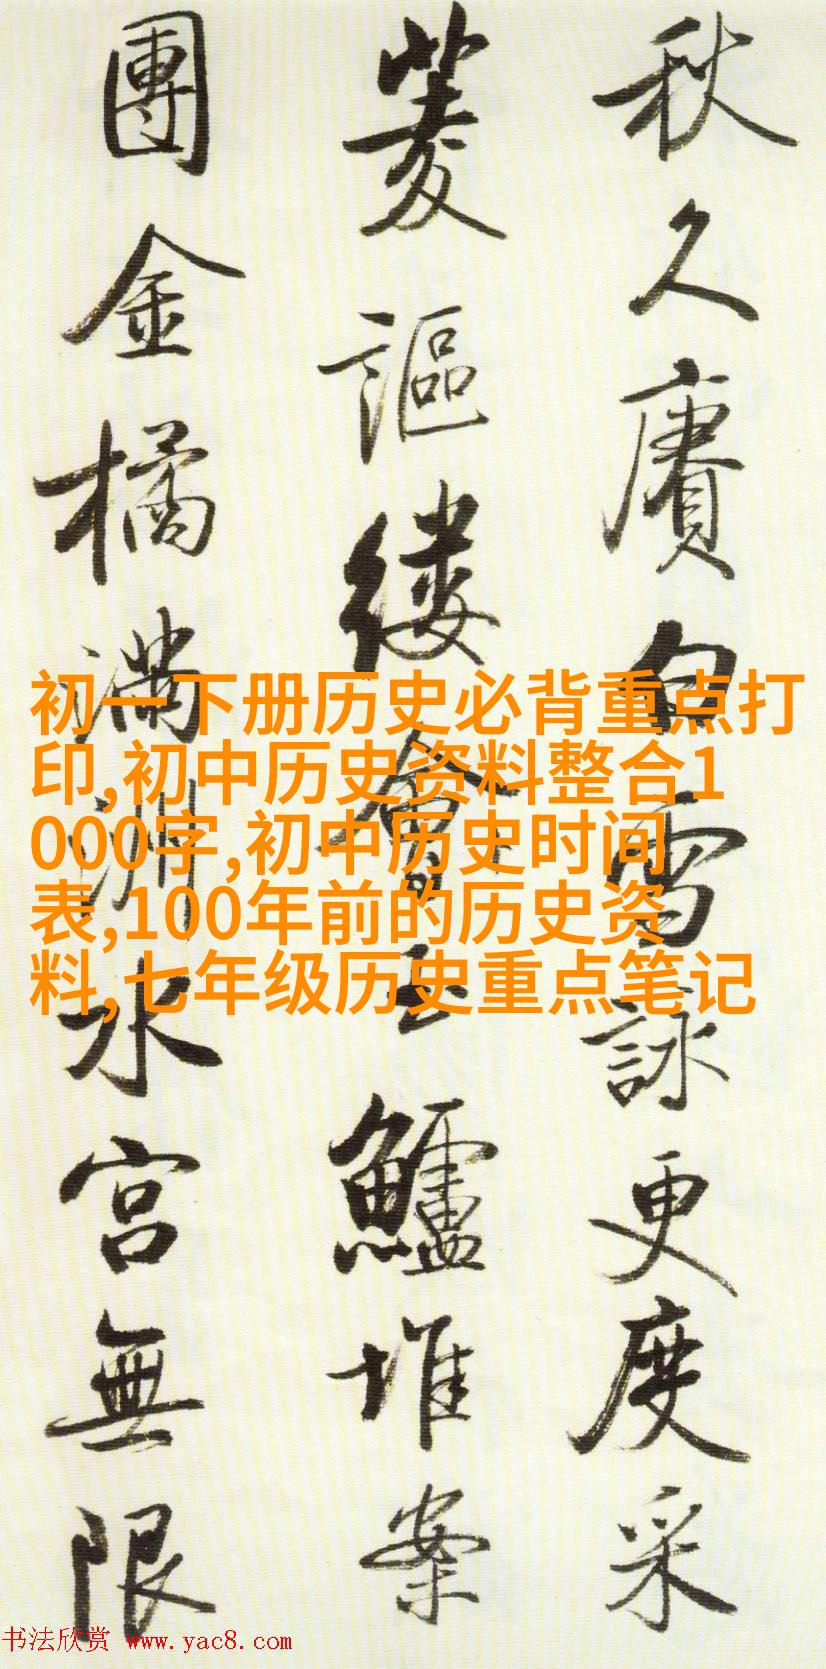 秋久賡白雪詠更度采
菱謳縷會玉鱸堆案
團金橘滿洲水宮無限
初一下册历史必背重点打
印,初中历史资料整合1
000字,初中历史时间
表,100年前的历史资
料,七年级历史重点笔记
书法欣赏 www.yac8.com